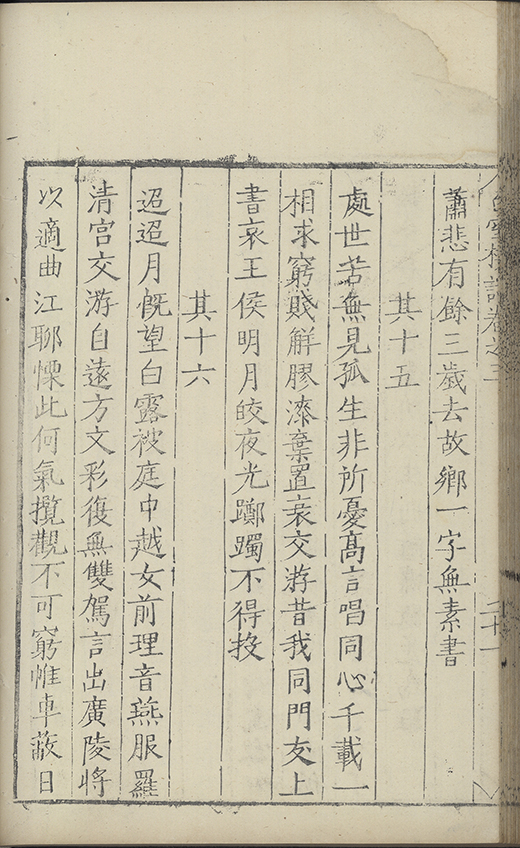 蕭悲有餘三歲去故鄉一字無素書
其十五
處世若無見孤生非所憂高言唱同心千載一
相求窮賤解膠漆棄置哀交游昔我同門友上
書哀王侯明月皎夜光躑躅不得投
其十六
迢迢月既望白露被庭中越女前理音燕服羅
清宮交游自遠方文彩復無雙駕言出廣陵將
以適曲江聊慄此何氣攬觀不可窮帷車蔽日